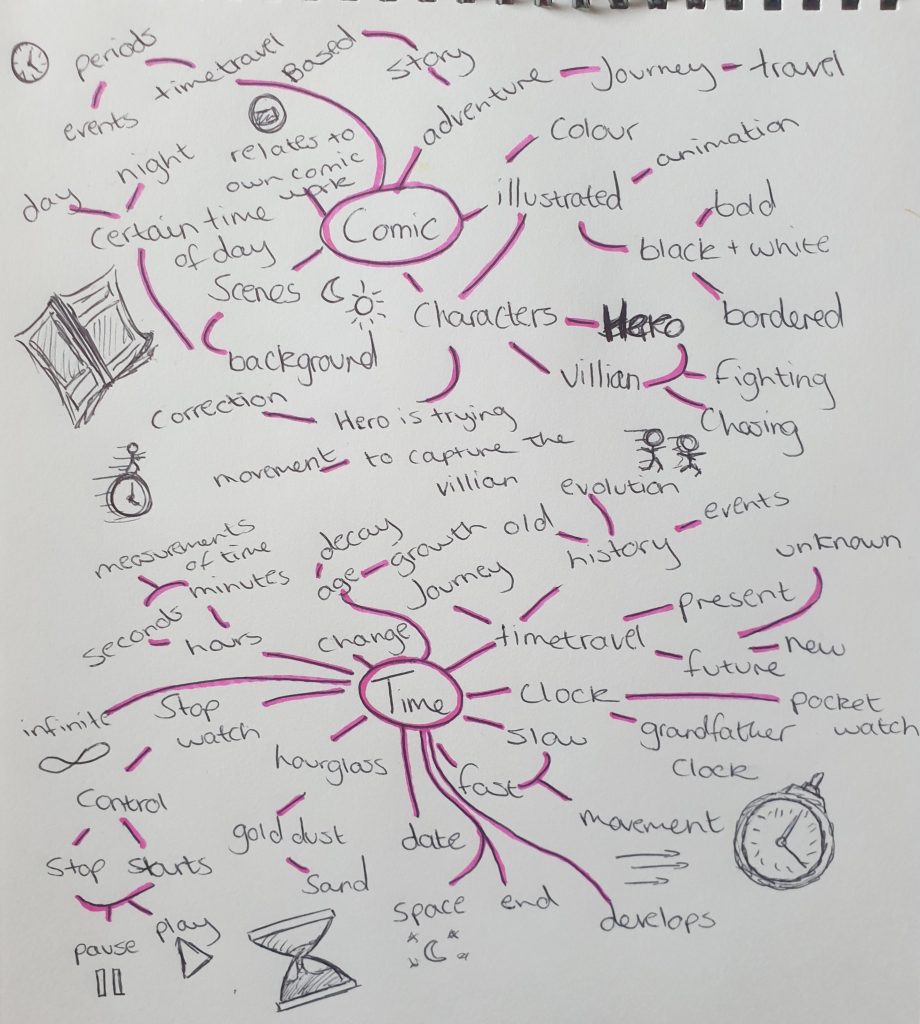 periods
timetravel
events
Based
Story
adventure
Journey
travel
relates to
own comic
work
Comic
illustrated
Colour
animation
black + white
bold
bordered
night
day
Certain time
of day
Scenes
background
Characters
Hero
Villian
Fighting
Chasing
Hero is trying
to capture the
villian
Correction
movement
measurements
of time
minutes
seconds
hours
decay
age
growth
old
change
Journey
evolution
history
events
timetravel
present
unknown
future
new
Time
Clock
pocket
watch
grandfather
Clock
infinite
Stop
watch
Control
Stop
starts
pause
play
hourglass
gold dust
Sand
Slow
fast
movement
date
space
end
develops